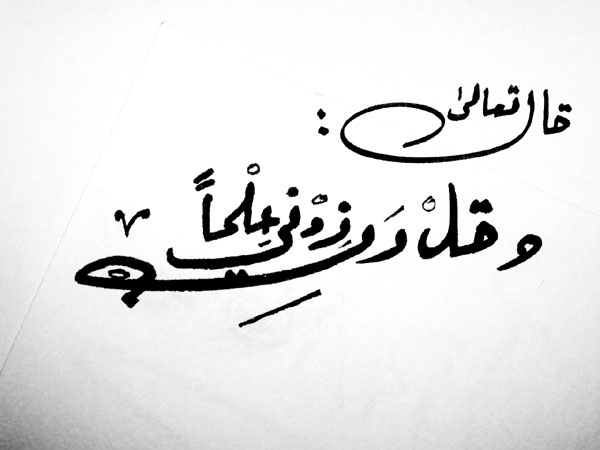 قال تعالى :
وقلْ رَبِّ زِدْني عِلْماً